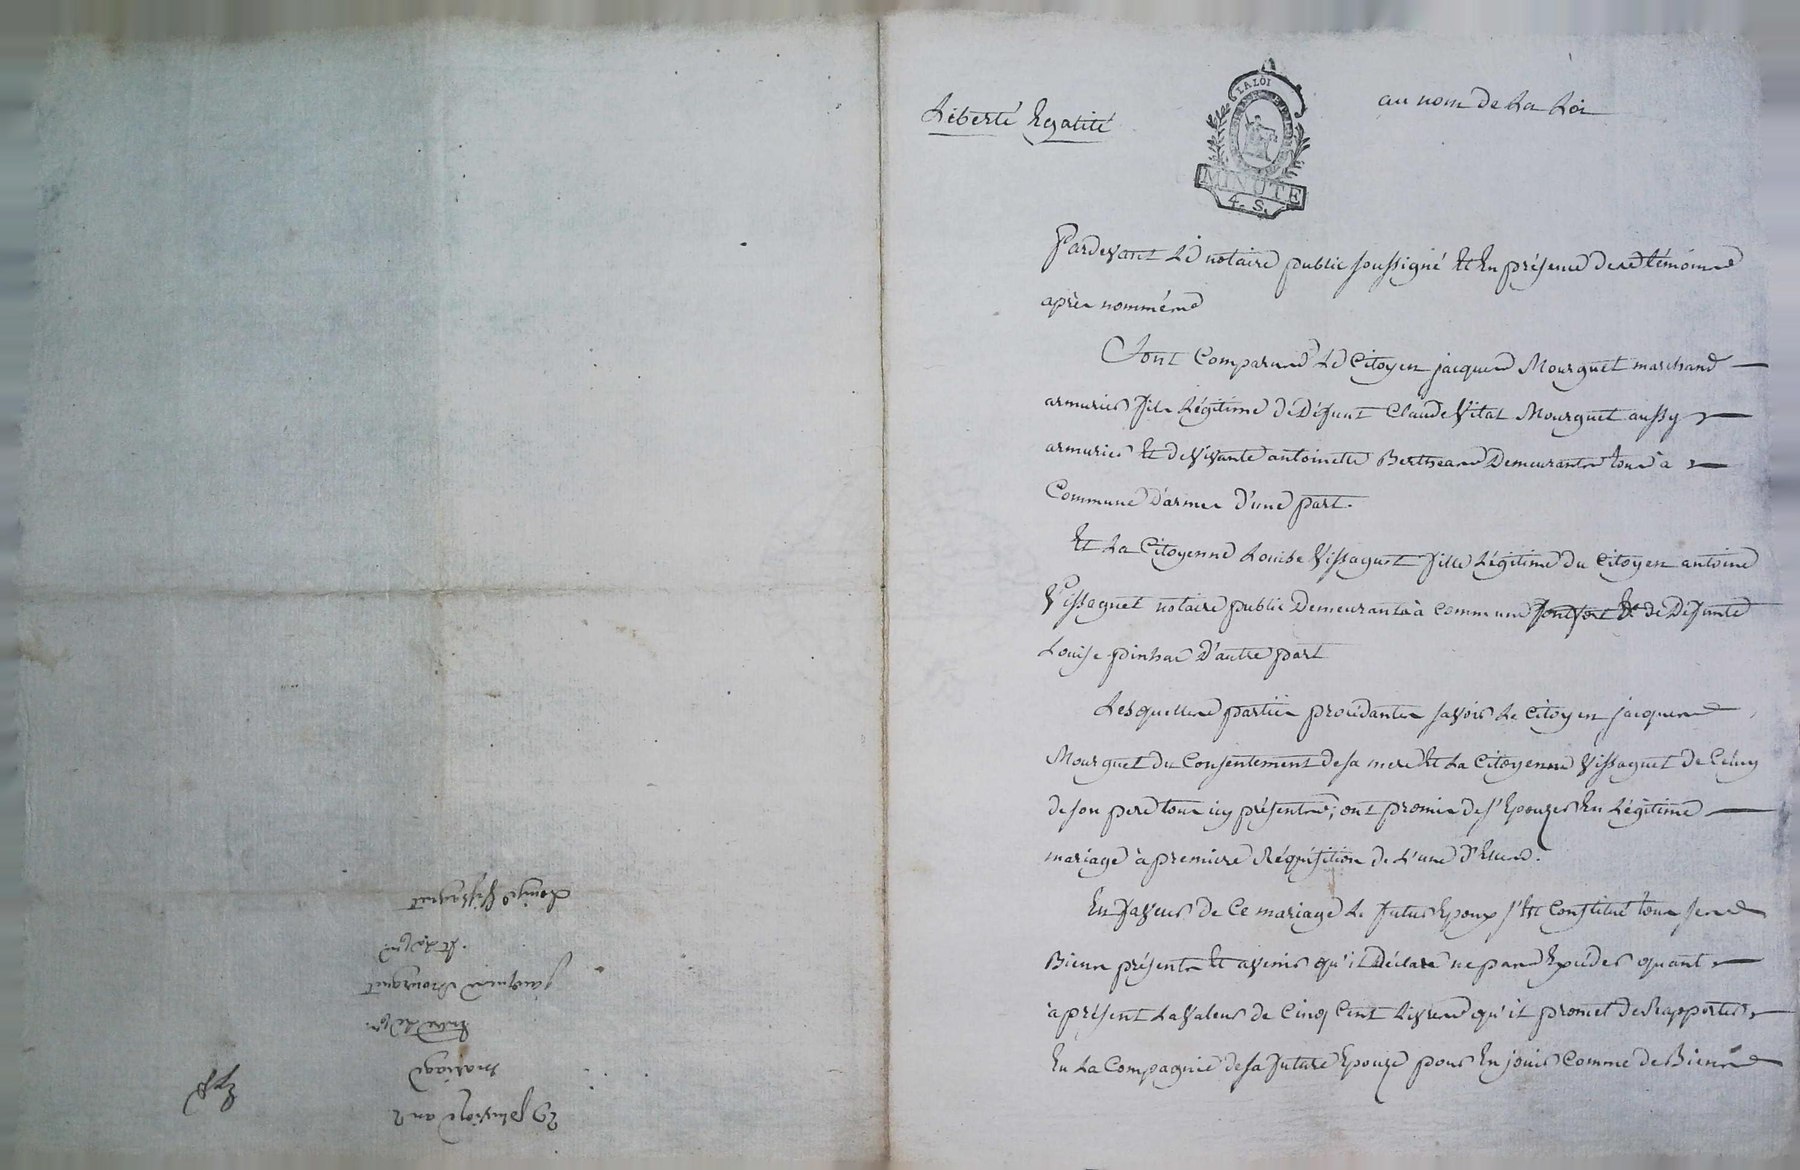 Liberté Egalité
LA LOI
MINUTE
4. S.
au nom de La Loi
Pardevant Le notaire public soussigné Et En présence des témoins
après nommés
Sont Comparus Le Citoyen jacques Mourguet marchand
armurier fils Légitime de Défunt Claude Vital Mourguet aussy
armurier Et de Vivante antoinette Demeurants tous à
Commune D'armes D'une part.
Et La Citoyenne Louise Vissaguet fille Légitime du Citoyen antoine
Vissaguet notaire public Demeurants à commune Et de Defunte
Louise pinhac D'autre part
Lesquelles parties procédantes savoir Le Citoyen jacques
Mourguet du Consentement de sa mere Et La Citoyenne Vissaguet de Celuy
de son pere tous icy présents, ont promis de s'Epouzer En Légitime
mariage à premiere Réquisition de L'une D'Elles.
En faveur de Ce mariage Le futur Epoux s'Est Constitué tous ses
Biens présents Et avenir qu'il Déclare ne pas Excéder quant
à présent La Valeur de Cinq Cent Livres qu'il promet de Rapporter
En La Compagnie de sa future Epouze pour En jouir Comme de Biens
29 pluviose an 2
mariage
Entre Le Cyn.
jacques Mourguet
Et La Cyne.
Louise Vissaguet